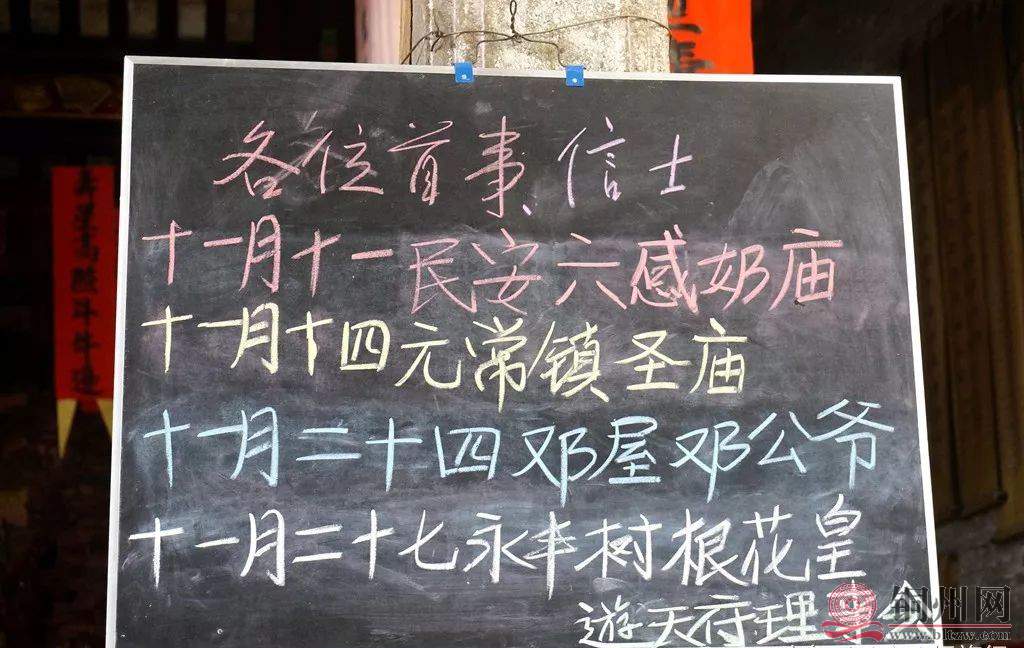 各位首事、信士
十一月十一民安六感奶庙
十一月十四元常镇圣庙
十一月二十四邓屋邓公爷
十一月二十七永丰树根花皇
遊天府理事会
荆州网
www.bltzw.com